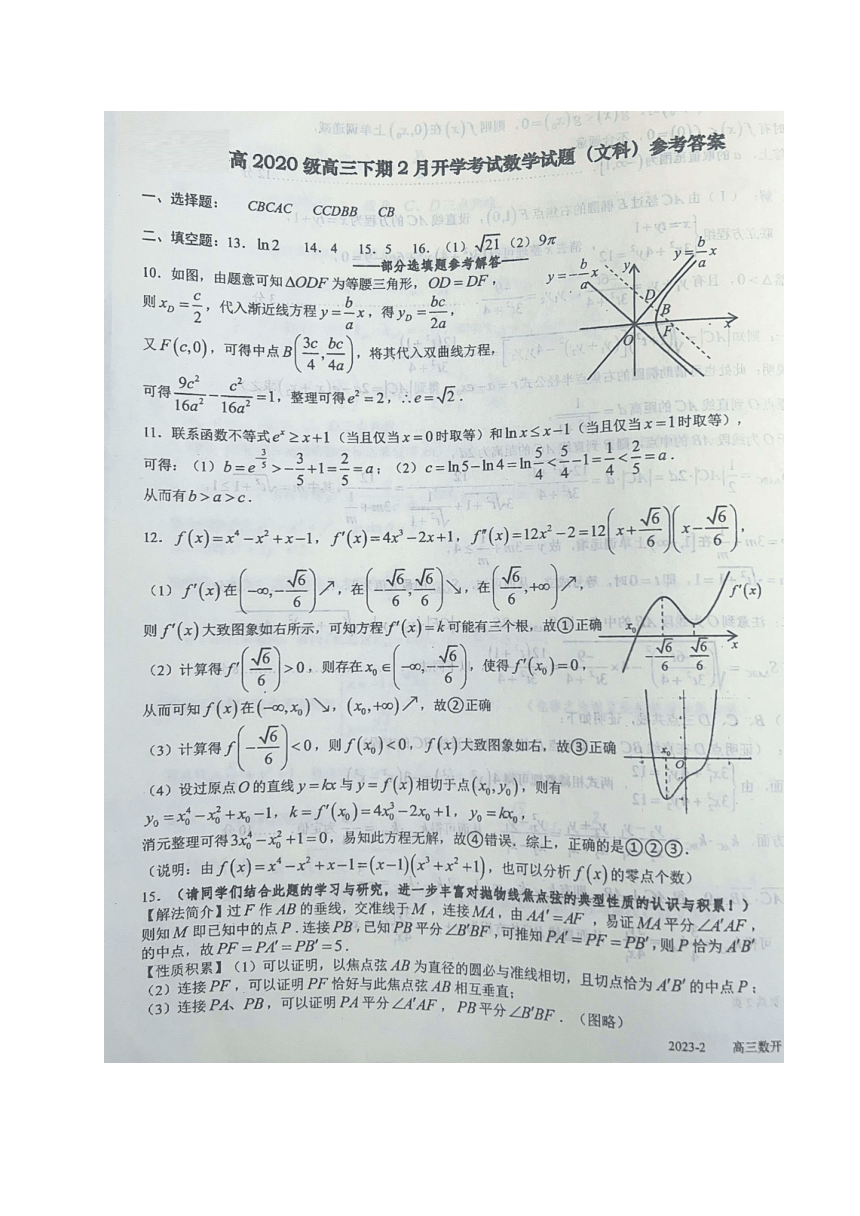 高 2020 级高三下期 2 月开学考试数学试题（文科）参考答案
一、选择题： CBCAC CCDBB CB
二、填空题：13. ln2 14. 4 15. 5 16. （1）√21 （2）9π
——部分选填题参考解答——
10. 如图，由题意可知 △ODF 为等腰三角形，OD = DF，
则 x_D = c/2，代入渐近线方程 y = (b/a)x，得 y_D = bc/2a，
又 F(c,0)，可得中点 B(3c/4, bc/4a)，将其代入双曲线方程，
可得 9c²/16a² − c²/16a² = 1，整理可得 e² = 2，∴ e = √2．
y = −(b/a)x
y
y = (b/a)x
D
B
O
F
x
11. 联系函数不等式 e^x ≥ x+1（当且仅当 x = 0 时取等）和 ln x ≤ x−1（当且仅当 x = 1 时取等），
可得：（1）b = e^(−3/5) > −3/5 + 1 = 2/5 = a；（2）c = ln5 − ln4 = ln 5/4 < 5/4 − 1 = 1/4 < 2/5 = a．
从而有 b > a > c．
12. f(x) = x⁴ − x² + x − 1，f′(x) = 4x³ − 2x + 1，f″(x) = 12x² − 2 = 12(x + √6/6)(x − √6/6)，
（1）f′(x) 在 (−∞, −√6/6)↗，在 (−√6/6, √6/6)↘，在 (√6/6, +∞)↗，
则 f′(x) 大致图象如右所示，可知方程 f′(x) = k 可能有三个根，故①正确
（2）计算得 f′(√6/6) > 0，则存在 x₀ ∈ (−∞, −√6/6)，使得 f′(x₀) = 0，
从而可知 f(x) 在 (−∞, x₀)↘，(x₀, +∞)↗，故②正确
（3）计算得 f(−√6/6) < 0，则 f(x₀) < 0，f(x) 大致图象如右，故③正确
f′(x)
x₀
−√6/6
√6/6
x
x₀
O
（4）设过原点 O 的直线 y = kx 与 y = f(x) 相切于点 (x₀, y₀)，则有
y₀ = x₀⁴ − x₀² + x₀ − 1，k = f′(x₀) = 4x₀³ − 2x₀ + 1，y₀ = kx₀，
消元整理可得 3x₀⁴ − x₀² + 1 = 0，易知此方程无解，故④错误．综上，正确的是①②③．
（说明：由 f(x) = x⁴ − x² + x − 1 = (x−1)(x³ + x² + 1)，也可以分析 f(x) 的零点个数）
15. （请同学们结合此题的学习与研究，进一步丰富对抛物线焦点弦的典型性质的认识与积累！）
【解法简介】过 F 作 AB 的垂线，交准线于 M，连接 MA，由 AA′ = AF，易证 MA 平分 ∠A′AF，
则知 M 即已知中的点 P．连接 PB，已知 PB 平分 ∠B′BF，可推知 PA′ = PF = PB′，则 P 恰为 A′B′
的中点，故 PF = PA′ = PB′ = 5．
【性质积累】（1）可以证明，以焦点弦 AB 为直径的圆必与准线相切，且切点恰为 A′B′ 的中点 P；
（2）连接 PF，可以证明 PF 恰好与此焦点弦 AB 相互垂直；
（3）连接 PA、PB，可以证明 PA 平分 ∠A′AF，PB 平分 ∠B′BF．（图略）
2023-2 高三数开